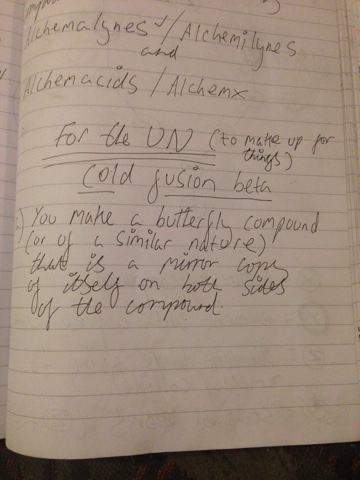 Alchemalynes / Alchemilynes
and
Alchemacids / Alchemx
For the UN (to make up for
things)
Cold fusion beta
) You make a butterfly compound
(or of a similar nature)
that is a mirror copy
of itself on both sides
of the compound.